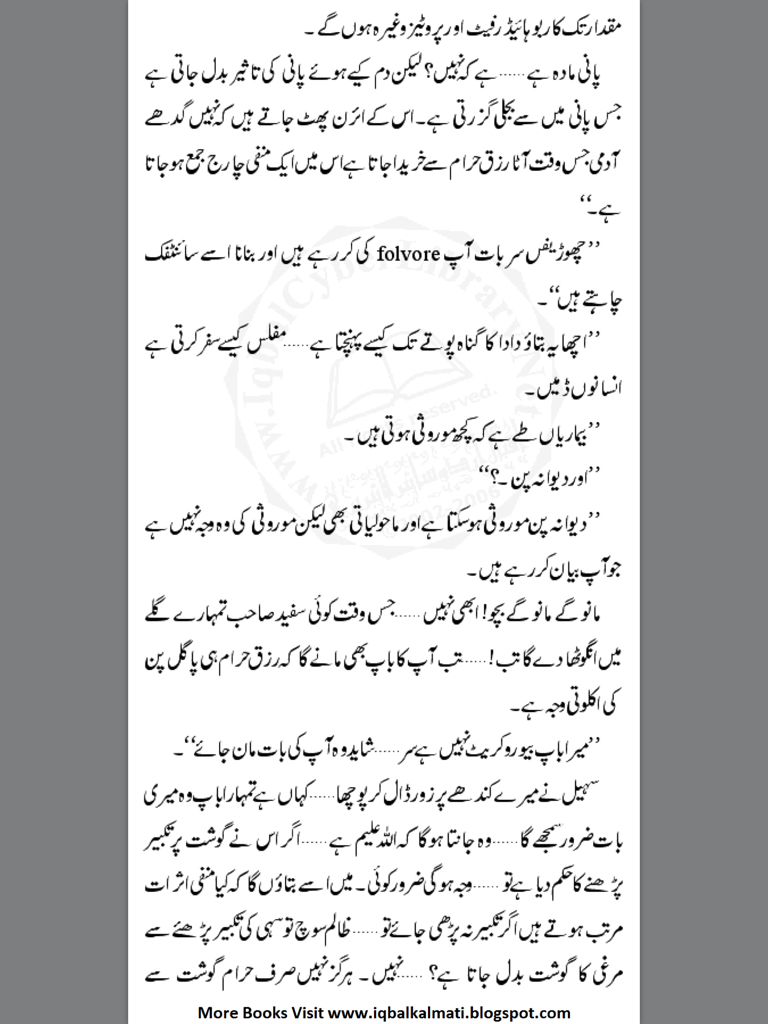 مقدار تک کاربوہائیڈرفیٹ اور پروٹیز وغیرہ ہوں گے ۔
پانی مادہ ہے ...... ہے کہ نہیں؟ لیکن دم کیے ہوئے پانی کی تاثیر بدل جاتی ہے
جس پانی میں سے بجلی گزرتی ہے۔ اس کے ائرن پھٹ جاتے ہیں کہ نہیں گدھے
آدمی جس وقت آٹا رزق حرام سے خریدا جاتا ہے اس میں ایک منفی چارج جمع ہو جاتا
ہے۔‘‘
’’چھوڑیئس سر بات آپ folvore کی کر رہے ہیں اور بنانا اسے سائنٹفک
چاہتے ہیں‘‘۔
’’اچھا یہ بتاؤ دادا کا گناہ پوتے تک کیسے پہنچتا ہے ...... مفلس کیسے سفر کرتی ہے
انسانوں ڈمیں۔
’’بیماریاں طے ہے کہ کچھ موروثی ہوتی ہیں۔
’’اور دیوانہ پن ۔؟‘‘
’’دیوانہ پن موروثی ہو سکتا ہے اور ماحولیاتی بھی لیکن موروثی کی وہ وجہ نہیں ہے
جو آپ بیان کر رہے ہیں۔
مانو گے مانو گے بچو! ابھی نہیں ...... جس وقت کوئی سفید صاحب تمہارے گلے
میں انگوٹھا دے گا تب! ...... تب آپ کا باپ بھی مانے گا کہ رزق حرام ہی پاگل پن
کی اکلوتی وجہ ہے۔
’’میرا باپ بیوروکریٹ نہیں ہے سر ...... شاید وہ آپ کی بات مان جائے‘‘۔
سہیل نے میرے کندھے پر زور ڈال کر پوچھا ...... کہاں ہے تمہارا باپ وہ میری
بات ضرور سمجھے گا ...... وہ جانتا ہو گا کہ اللہ علیم ہے ...... اگر اس نے گوشت پر تکبیر
پڑھنے کا حکم دیا ہے تو ...... وجہ ہو گی ضرور کوئی۔ میں اسے بتاؤں گا کہ کیا منفی اثرات
مرتب ہوتے ہیں اگر تکبیر نہ پڑھی جائے تو ...... ظالم سوچ تو سہی کی تکبیر پڑھئے سے
مرغی کا گوشت بدل جاتا ہے؟ ...... نہیں۔ ہرگز نہیں صرف حرام گوشت سے
More Books Visit www.iqbalkalmati.blogspot.com